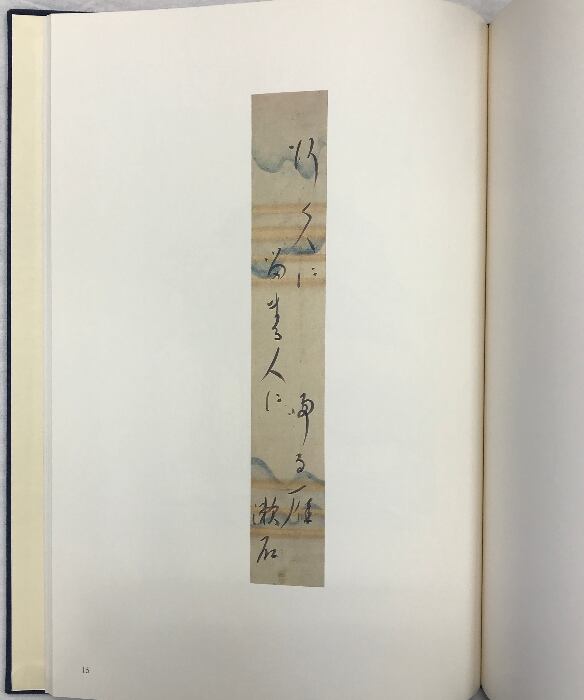 行く人に
留まる人に
帰る雁
漱石
15